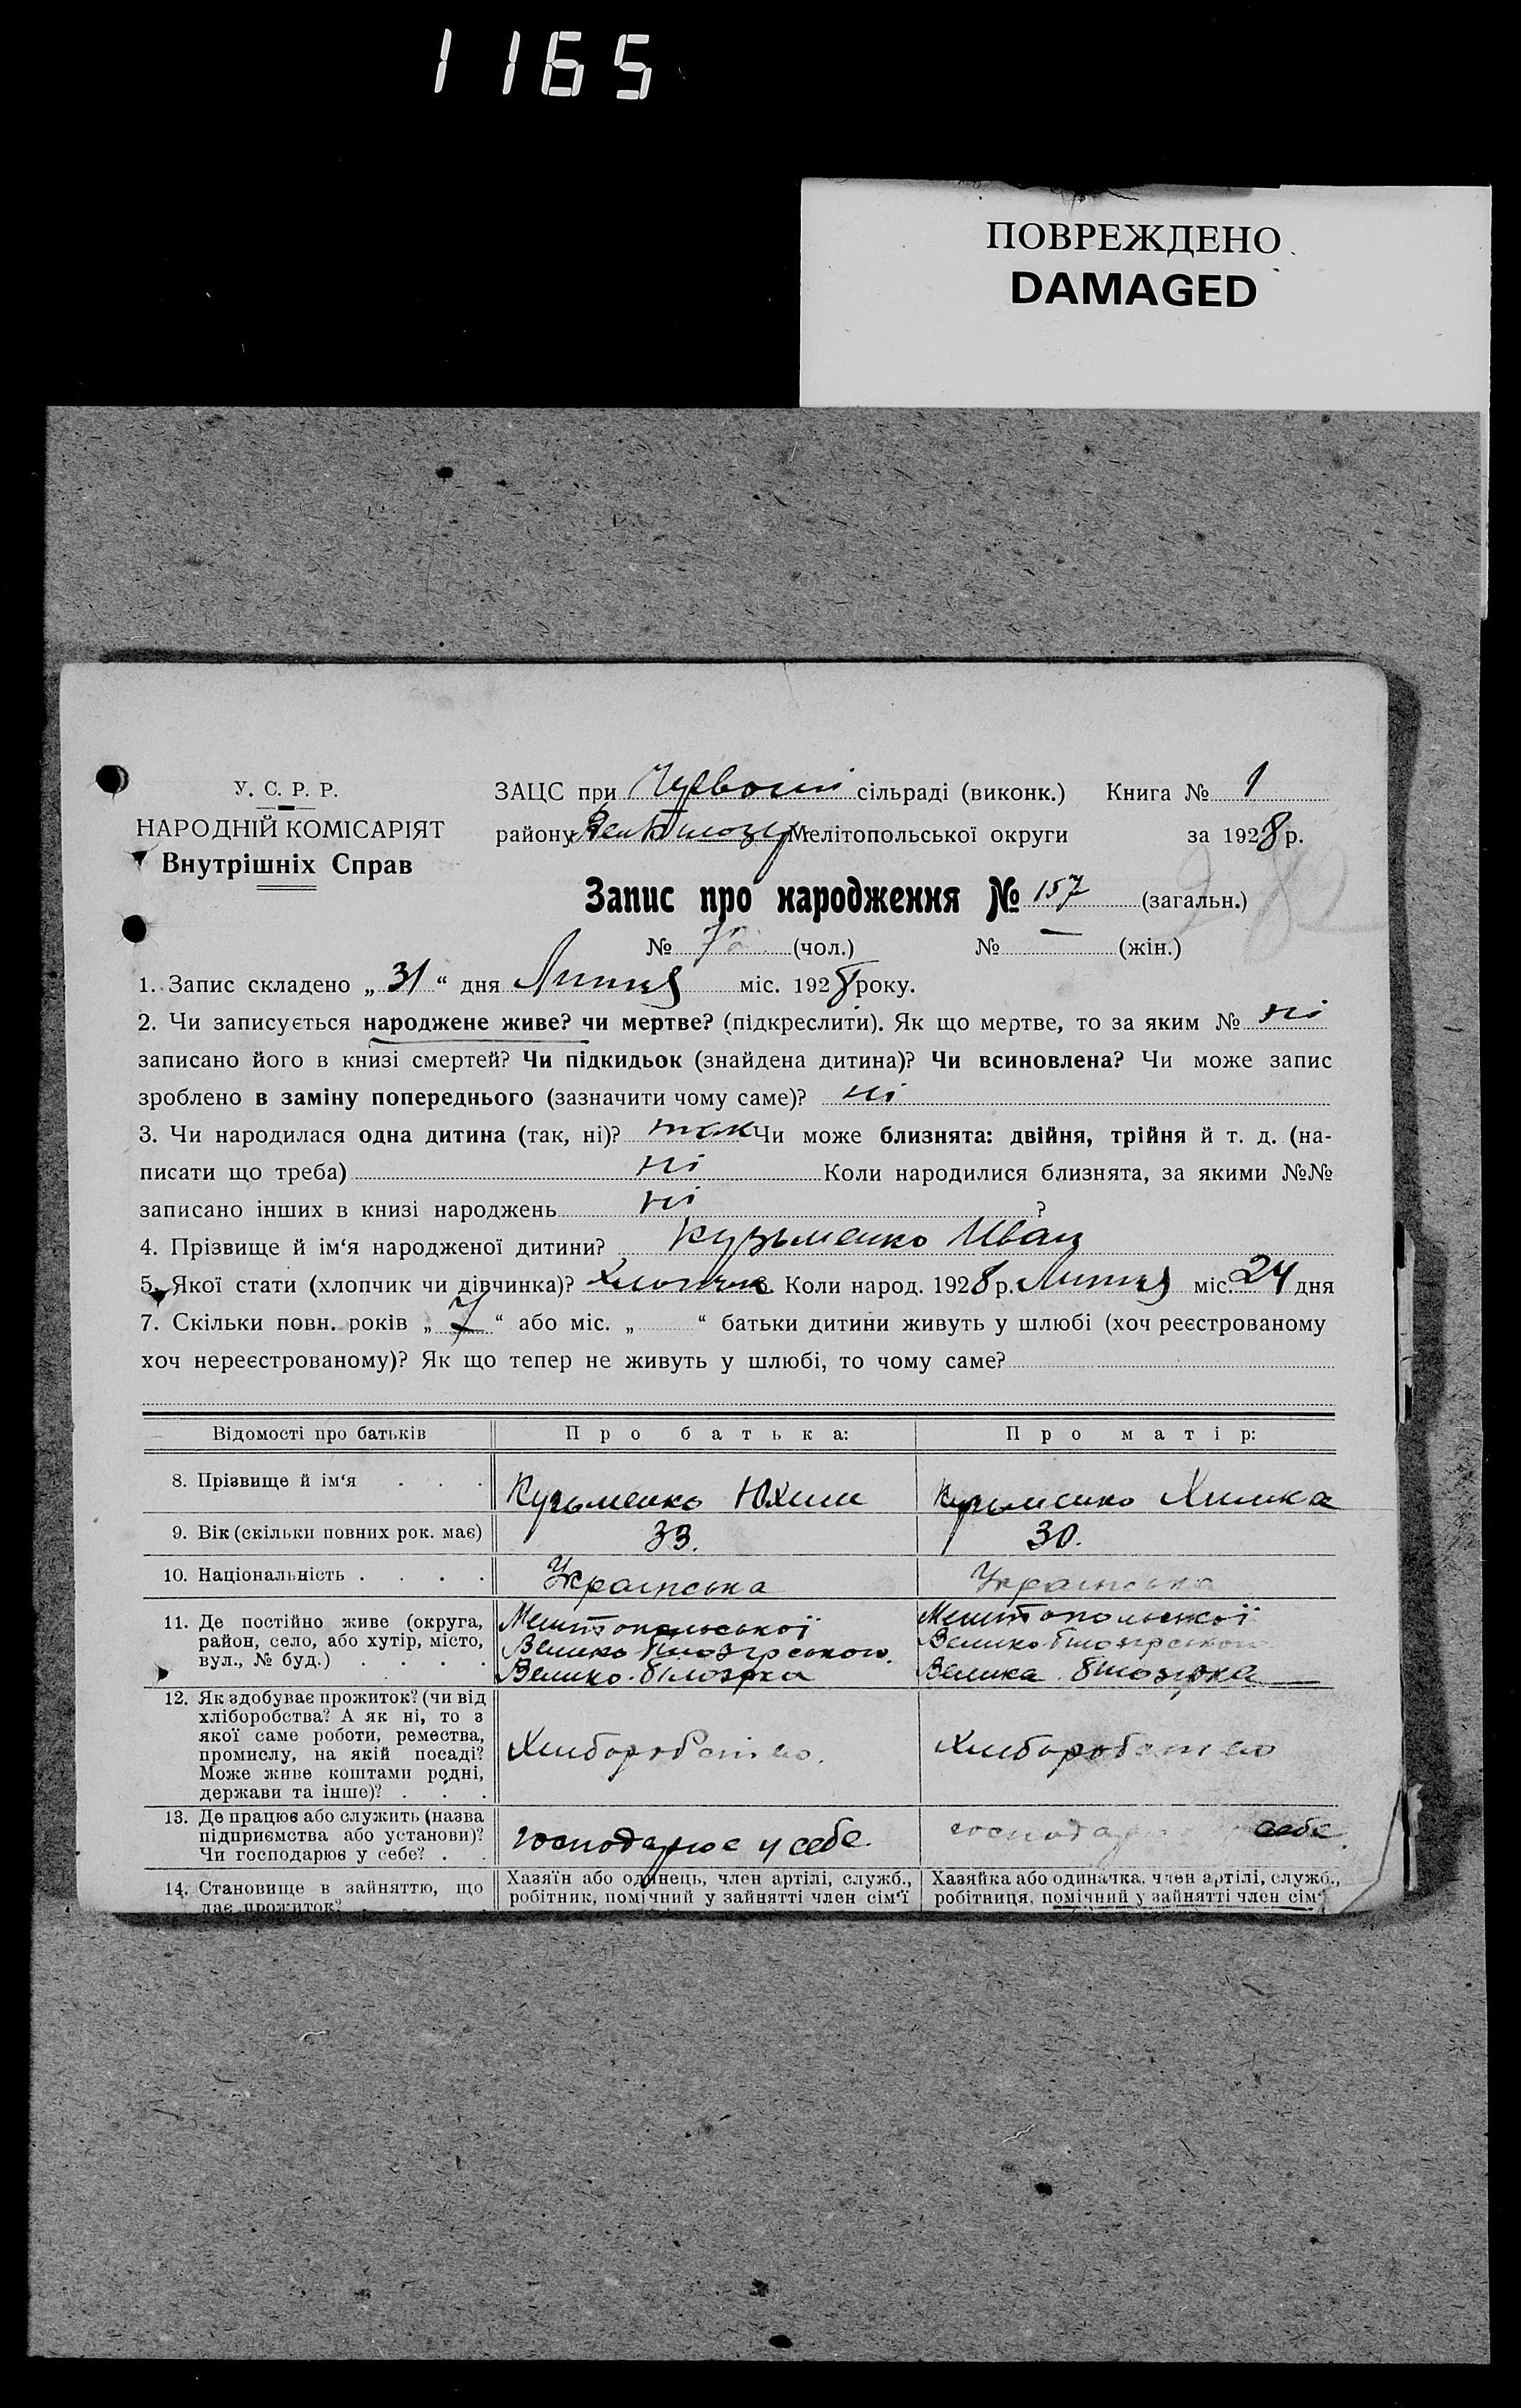 1165
ПОВРЕЖДЕНО
DAMAGED
У. С. Р. Р.
НАРОДНІЙ КОМІСАРІЯТ
Внутрішніх Справ
ЗАЦС при Червоній сільраді (виконк.) Книга № 1
району Мелітопольської округи за 1928 р.
Запис про народження № 157 (загальн.)
№ (чол.) № — (жін.)
1. Запис складено „ 31 “ дня Липня міс. 1928 року.
2. Чи записується народжене живе? чи мертве? (підкреслити). Як що мертве, то за яким № ні
записано його в книзі смертей? Чи підкидьок (знайдена дитина)? Чи всиновлена? Чи може запис
зроблено в заміну попереднього (зазначити чому саме)? ні
3. Чи народилася одна дитина (так, ні)? так Чи може близнята: двійня, трійня й т. д. (на-
писати що треба) ні Коли народилися близнята, за якими №№
записано інших в книзі народжень ні ?
4. Прізвище й ім‘я народженої дитини? Кузьменко Иван
5. Якої стати (хлопчик чи дівчинка)? Хлопчик 6. Коли народ. 1928 р. Липня міс. 24 дня
7. Скільки повн. років „ 7 “ або міс. „ “ батьки дитини живуть у шлюбі (хоч реєстрованому
хоч нереєстрованому)? Як що тепер не живуть у шлюбі, то чому саме?
Відомості про батьків Про батька: Про матір:
8. Прізвище й ім‘я . . . Кузьменко Юхим Кузьменко Химка
9. Вік (скільки повних рок. має) 33. 30.
10. Національність . . . . Українська Українська
11. Де постійно живе (округа,
район, село, або хутір, місто,
вул., № буд.) . . . .
Мелітопольської
Велико Білозерського.
Велико-Білозрка
Мелітопольської
Велико Білозерського
Велика Білозрка
12. Як здобуває прожиток? (чи від
хліборобства? А як ні, то з
якої саме роботи, ремества,
промислу, на якій посаді?
Може живе коштами родні,
держави та інше)? . . .
Хліборобство.
Хліборобство
13. Де працює або служить (назва
підприємства або установи)?
Чи господарює у себе? . .
господарює у себе.
господарює у себе.
14. Становище в зайняттю, що
дає прожиток?
Хазяїн або одинець, член артілі, служб.,
робітник, помічний у зайнятті член сім‘ї
Хазяйка або одиначка, член артілі, служб.,
робітниця, помічний у зайнятті член сім‘ї